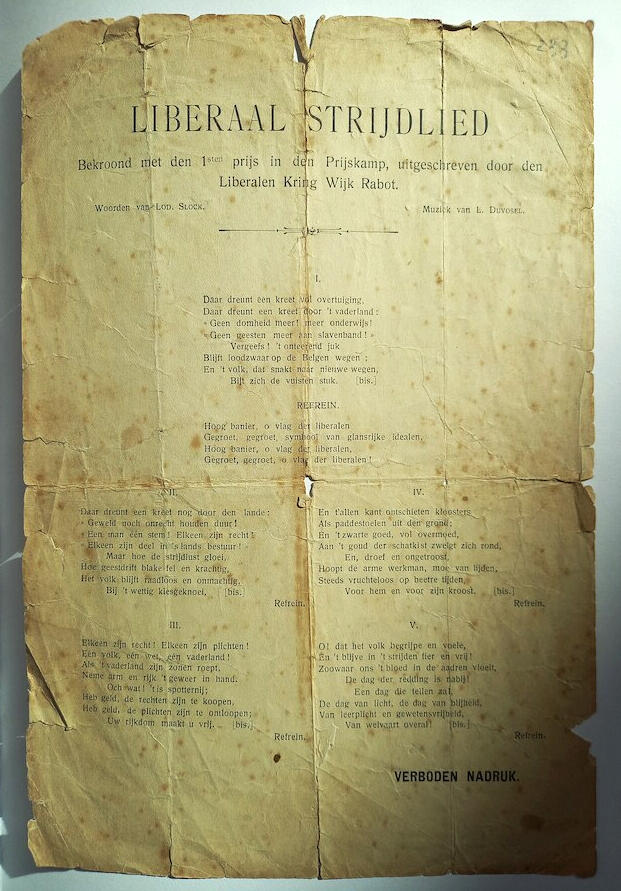 LIBERAAL STRIJDLIED
Bekroond met den 1sten prijs in den Prijskamp, uitgeschreven door den
Liberalen Kring Wijk Rabot.
Woorden van Lod. Slock.
Muziek van L. Duvosel.
I.
Daar dreunt een kreet vol overtuiging,
Daar dreunt een kreet door 't vaderland:
« Geen domheid meer! meer onderwijs!
« Geen geesten meer aan slavenband! »
Vergeefs! 't onteerend juk
Blijft loodzwaar op de Belgen wegen;
En 't volk, dat snakt naar nieuwe wegen,
Bijt zich de vuisten stuk. [bis.]
REFREIN.
Hoog banier, o vlag der liberalen
Gegroet, gegroet, symbool van glansrijke idealen,
Hoog banier, o vlag der liberalen,
Gegroet, gegroet, o vlag der liberalen!
II.
Daar dreunt een kreet nog door den lande:
« Geweld noch onrecht houden duur!
« Een man één stem! Elkeen zijn recht!
« Elkeen zijn deel in 's lands bestuur!
Maar hoe de strijdlust gloei,
Hoe geestdrift blake fel en krachtig,
Het volk blijft raadloos en onmachtig,
Bij 't wettig kiesgeknoei, [bis.]
Refrein.
III.
Elkeen zijn recht! Elkeen zijn plichten!
Eén volk, één wet, één vaderland!
Als 't vaderland zijn zonen roept,
Neme arm en rijk 't geweer in hand.
Och wat! 't is spotternij;
Heb geld, de rechten zijn te koopen,
Heb geld, de plichten zijn te ontloopen;
Uw rijkdom maakt u vrij. [bis.]
Refrein.
IV.
En t'allen kant ontschieten kloosters
Als paddestoelen uit den grond;
En 't zwarte goed, vol overmoed,
Aan 't goud der schatkist zwelgt zich rond,
En, droef en ongetroost,
Hoopt de arme werkman, moe van lijden,
Steeds vruchteloos op beetre tijden,
Voor hem en voor zijn kroost. [bis.]
Refrein.
V.
O! dat het volk begrijpe en voele,
En 't blijve in 't strijden fier en vrij!
Zoowaar ons 't bloed in de aadren vloeit,
De dag der redding is nabij!
Een dag die teilen zal,
De dag van licht, de dag van blijheid,
Van leerplicht en gewetensvrijheid,
Van welvaart overal! [bis.]
Refrein.
VERBODEN NADRUK.